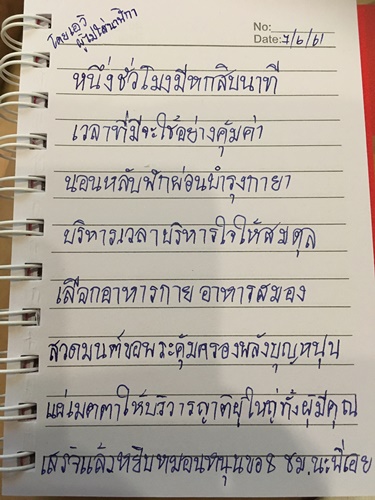 โดยเอวิ
ผู้ไม่ใส่นาฬิกา
No:
Date: 7/6/61
หนึ่งชั่วโมงมีหกสิบนาที
เวลาที่มีจะใช้อย่างคุ้มค่า
นอนหลับพักผ่อนบำรุงกายา
บริหารเวลาบริหารใจให้สมดุล
เลือกอาหารกาย อาหารสมอง
สวดมนต์ขอพระคุ้มครองพลังบุญหนุน
แผ่เมตตาให้บริวารญาติผู้ใหญ่ทั้งผู้มีคุณ
เสร็จแล้วหยิบหมอนหนุนขอ 8 ชม.นะพี่เอย